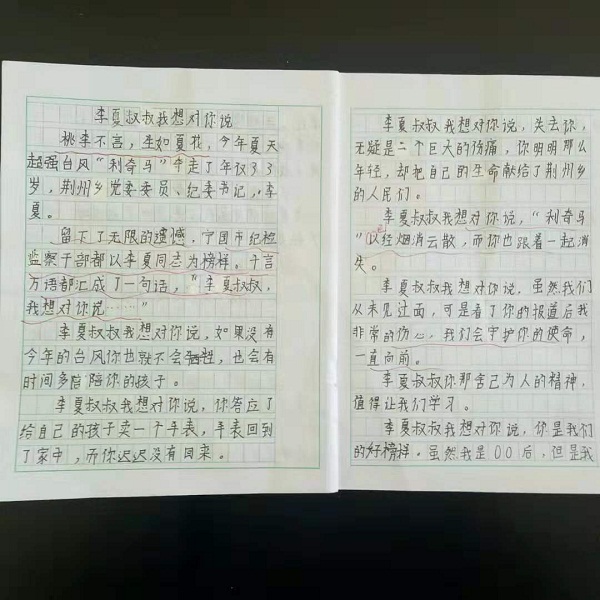 李夏叔叔我想对你说
桃李不言，生如夏花，今年夏天
超强台风“利奇马”中走了年仅33
岁，荆州乡党委委员、纪委书记，李
夏。
留下了无限的遗憾，宁国市纪检
监察干部都以李夏同志为榜样。千言
万语都汇成了一句话，“李夏叔叔，
我想对你说……”
李夏叔叔我想对你说，如果没有
今年的台风你也就不会，也会有
时间多陪陪你的孩子。
李夏叔叔我想对你说，你答应了
给自己的孩子卖一个手表，手表回到
了家中，而你迟迟没有回来。
李夏叔叔我想对你说，失去你，
无疑是一个巨大的伤痛，你明明那么
年轻，却把自己的生命献给了荆州乡
的人民们。
李夏叔叔我想对你说，“利奇马
”以经烟消云散，而你也跟着一起消
失。
李夏叔叔我想对你说，虽然我们
从未见过面，可是看了你的报道后我
非常的伤心，我们会守护你的使命，
一直向前。
李夏叔叔你那舍己为人的精神，
值得让我们学习。
李夏叔叔我想对你说，你是我们
的好榜样。虽然我是00后，但是我